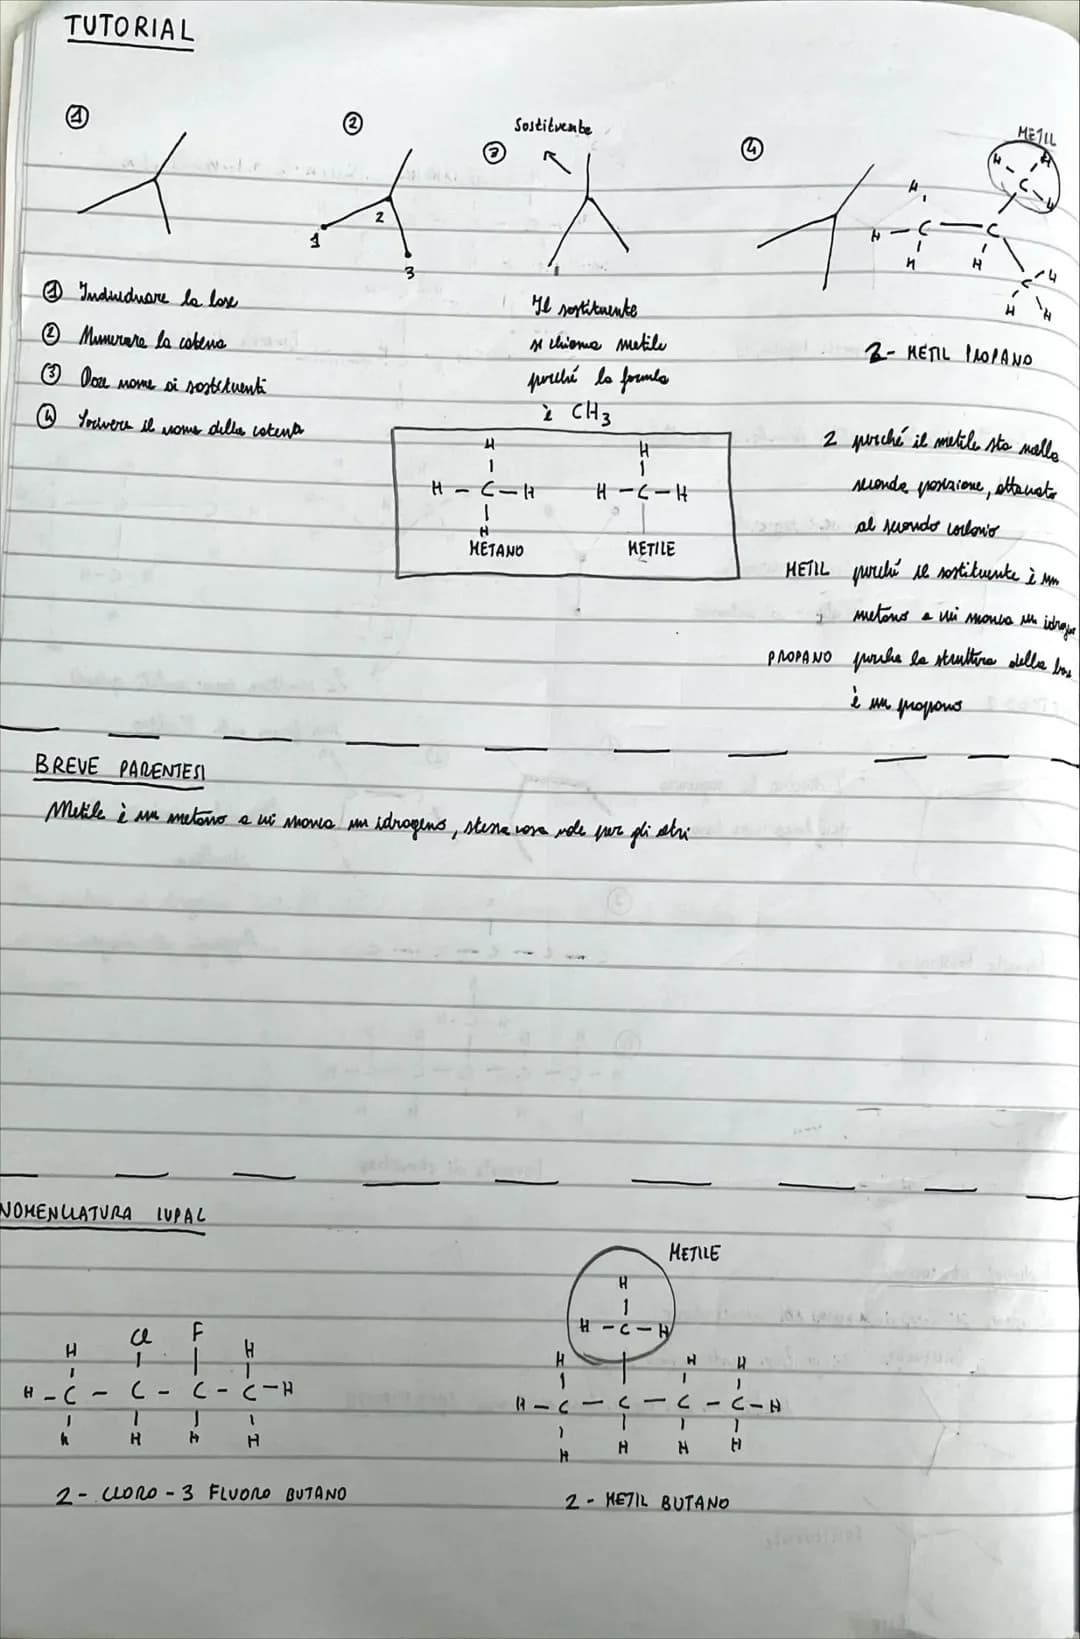 TUTORIAL
1
2
Sostituente
3
4
METIL
1
2
3
H H
H C H
H - C - C
H H C H
H H
1 Individuare la base
2 Numerare la catena
3 Dare nome ai sostituenti
4 Scrivere il nome della catena
Il sostituente
si chiama metile
perché la formula
è CH3
H
H - C - H
H
METANO
H
H - C - H
METILE
2 - METIL PROPANO
2 perché il metile sta nella
seconda posizione, attaccato
al secondo carbonio
METIL perché il sostituente è un
metano a cui manca un
PROPANO perche la struttura della base
è un propano
BREVE PARENTESI
Metile è un metano a cui manca un idrogeno, stessa cosa vale per gli altri
NOMENCLATURA IUPAC
H Cl F H
H - C - C - C - C - H
H H H H
2 - CLORO - 3 FLUORO BUTANO
METILE
H
H - C - H
H H H
H - C - C - C - C - H
H H H H
2 - METIL BUTANO